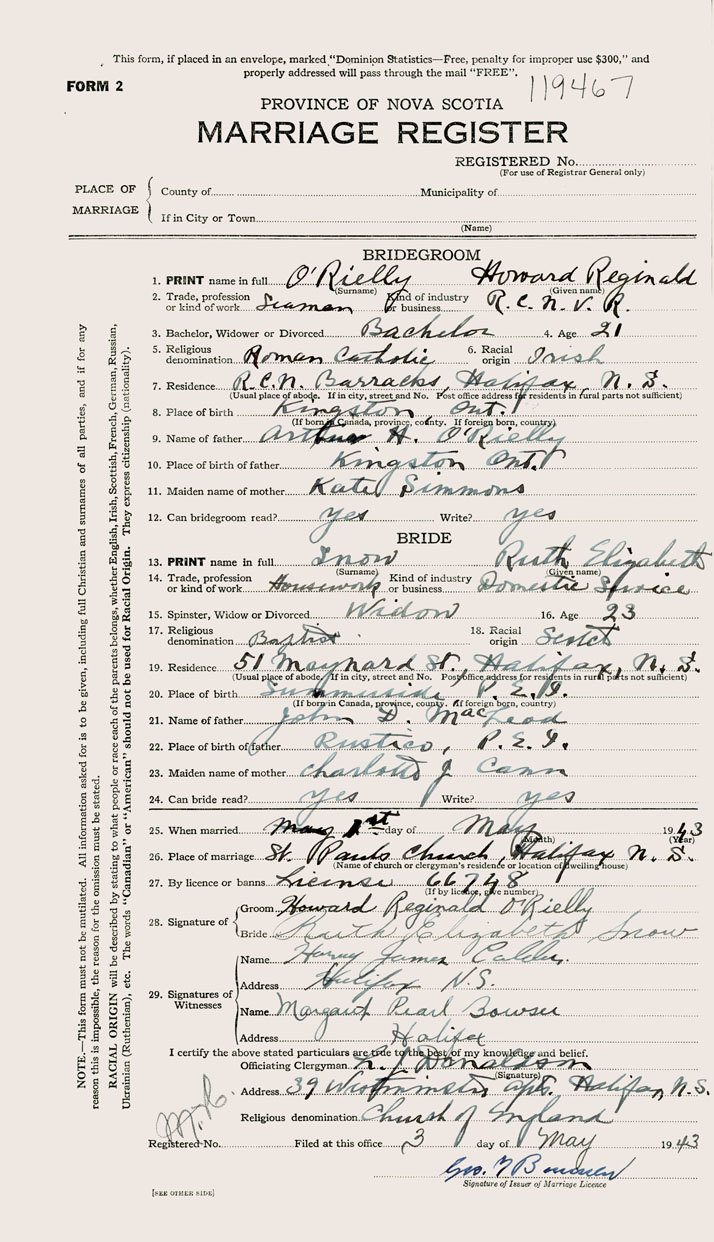 This form, if placed in an envelope, marked "Dominion Statistics—Free, penalty for improper use $300," and
properly addressed will pass through the mail "FREE".
FORM 2
119467
PROVINCE OF NOVA SCOTIA
MARRIAGE REGISTER
REGISTERED No.
(For use of Registrar General only)
PLACE OF MARRIAGE
County of Municipality of
If in City or Town
(Name)
BRIDEGROOM
1. PRINT name in full O'Rielly Howard Reginald
(Surname) (Given name)
2. Trade, profession or kind of work Seaman Kind of industry or business R.C.N.V.R.
3. Bachelor, Widower or Divorced Bachelor 4. Age 21
5. Religious denomination Roman Catholic 6. Racial origin Irish
7. Residence R.C.N. Barracks, Halifax, N.S.
(Usual place of abode. If in city, street and No. Post office address for residents in rural parts not sufficient)
8. Place of birth Kingston Ont.
(If born in Canada, province, county. If foreign born, country)
9. Name of father Arthur H. O'Rielly
10. Place of birth of father Kingston Ont.
11. Maiden name of mother Kate Simmons
12. Can bridegroom read? yes Write? yes
BRIDE
13. PRINT name in full Snow Ruth Elizabeth
(Surname) (Given name)
14. Trade, profession or kind of work Housework Kind of industry or business Domestic Service
15. Spinster, Widow or Divorced Widow 16. Age 23
17. Religious denomination Baptist 18. Racial origin Scotch
19. Residence 51 Maynard St., Halifax, N.S.
(Usual place of abode. If in city, street and No. Post office address for residents in rural parts not sufficient)
20. Place of birth Summerside P.E.I.
(If born in Canada, province, county. If foreign born, country)
21. Name of father John D. MacLeod
22. Place of birth of father Rustico, P.E.I.
23. Maiden name of mother Charlotte J Cann
24. Can bride read? yes Write? yes
25. When married May 1st day of May 1943
(Month) (Year)
26. Place of marriage St. Pauls Church, Halifax N.S.
(Name of church or clergyman's residence or location of dwelling house)
27. By licence or banns License 66748
(If by licence, give number)
28. Signature of
Groom Howard Reginald O'Rielly
Bride Ruth Elizabeth Snow
29. Signatures of Witnesses
Name Harvey James
Address Halifax N.S.
Name Margaret Pearl Bowser
Address Halifax
I certify the above stated particulars are true to the best of my knowledge and belief.
Officiating Clergyman Donaldson
(Signature)
Address 39 Westminster Apts. Halifax, N.S.
Religious denomination Church of England
Registered No. Filed at this office 3 day of May 1943
Geo.
Signature of Issuer of Marriage Licence
[SEE OTHER SIDE]
NOTE.—This form must not be mutilated. All information asked for is to be given, including full Christian and surnames of all parties, and if for any
reason this is impossible, the reason for the omission must be stated.
RACIAL ORIGIN will be described by stating to what people or race each of the parents belongs, whether English, Irish, Scottish, French, German, Russian,
Ukrainian (Ruthenian), etc. The words "Canadian" or "American" should not be used for Racial Origin. They express citizenship (nationality).